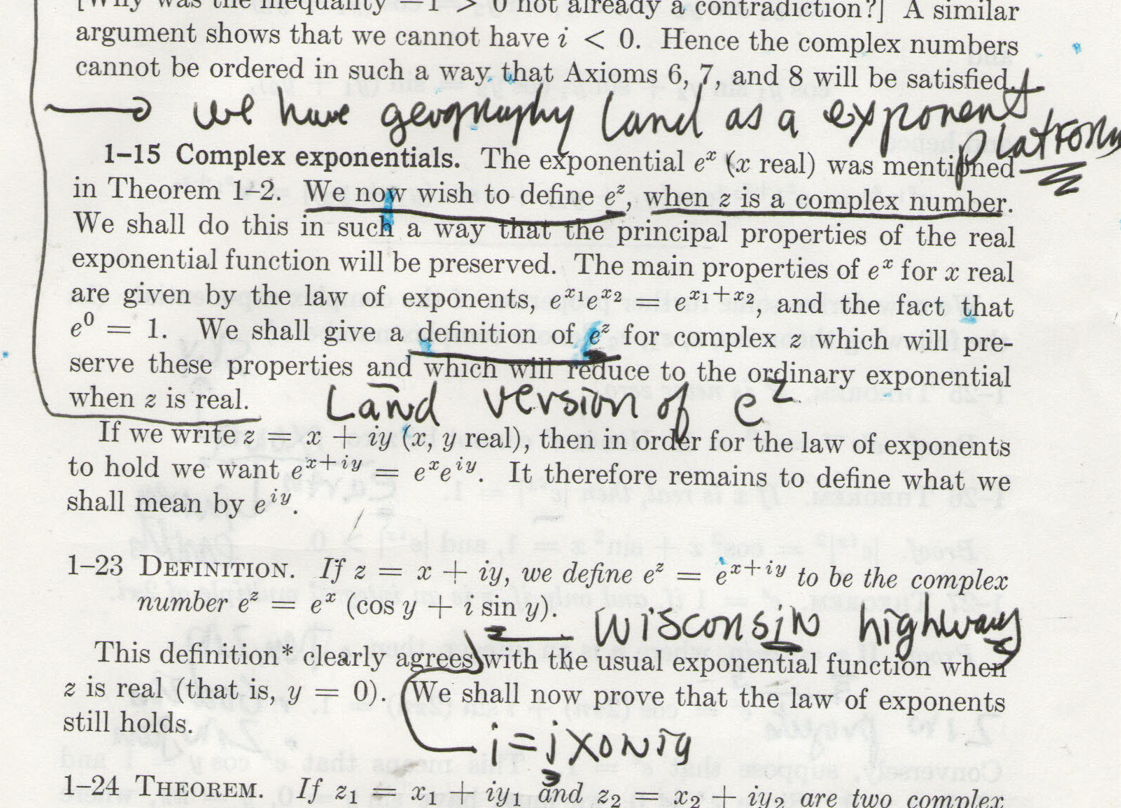 [Why was the inequality −1 > 0 not already a contradiction?] A similar
argument shows that we cannot have i < 0. Hence the complex numbers
cannot be ordered in such a way that Axioms 6, 7, and 8 will be satisfied.
we have geography land as a exponent
1–15 Complex exponentials. The exponential eˣ (x real) was mentioned
in Theorem 1–2. We now wish to define eᶻ, when z is a complex number.
We shall do this in such a way that the principal properties of the real
exponential function will be preserved. The main properties of eˣ for x real
are given by the law of exponents, e^{x₁}e^{x₂} = e^{x₁+x₂}, and the fact that
e⁰ = 1. We shall give a definition of eᶻ for complex z which will pre-
serve these properties and which will reduce to the ordinary exponential
when z is real.
Land version of eᶻ
If we write z = x + iy (x, y real), then in order for the law of exponents
to hold we want e^{x+iy} = eˣe^{iy}. It therefore remains to define what we
shall mean by e^{iy}.
1–23 DEFINITION. If z = x + iy, we define eᶻ = e^{x+iy} to be the complex
number eᶻ = eˣ (cos y + i sin y).
Wisconsin highway
This definition* clearly agrees with the usual exponential function when
z is real (that is, y = 0). We shall now prove that the law of exponents
still holds.
1–24 THEOREM. If z₁ = x₁ + iy₁ and z₂ = x₂ + iy₂ are two complex